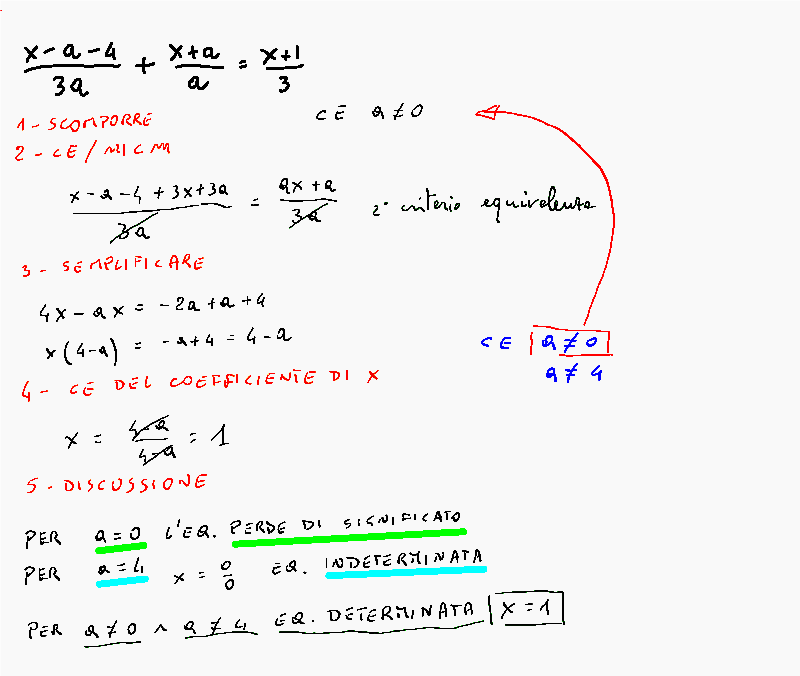 x-a-4/3a + x+a/a = x+1/3
1 - SCOMPORRE
CE a≠0
2 - CE / MICM
x-a-4+3x+3a/3a = ax+a/3a 2° criterio equivalenza
3 - SEMPLIFICARE
4x-ax = -2a+a+4
x(4-a) = -a+4 = 4-a
CE a≠0
a≠4
4 - CE DEL COEFFICIENTE DI X
x = 4-a/4-a = 1
5 - DISCUSSIONE
PER a=0 L'EQ. PERDE DI SIGNIFICATO
PER a=4 x = 0/0 EQ. INDETERMINATA
PER a≠0 ∧ a≠4 EQ. DETERMINATA x=1